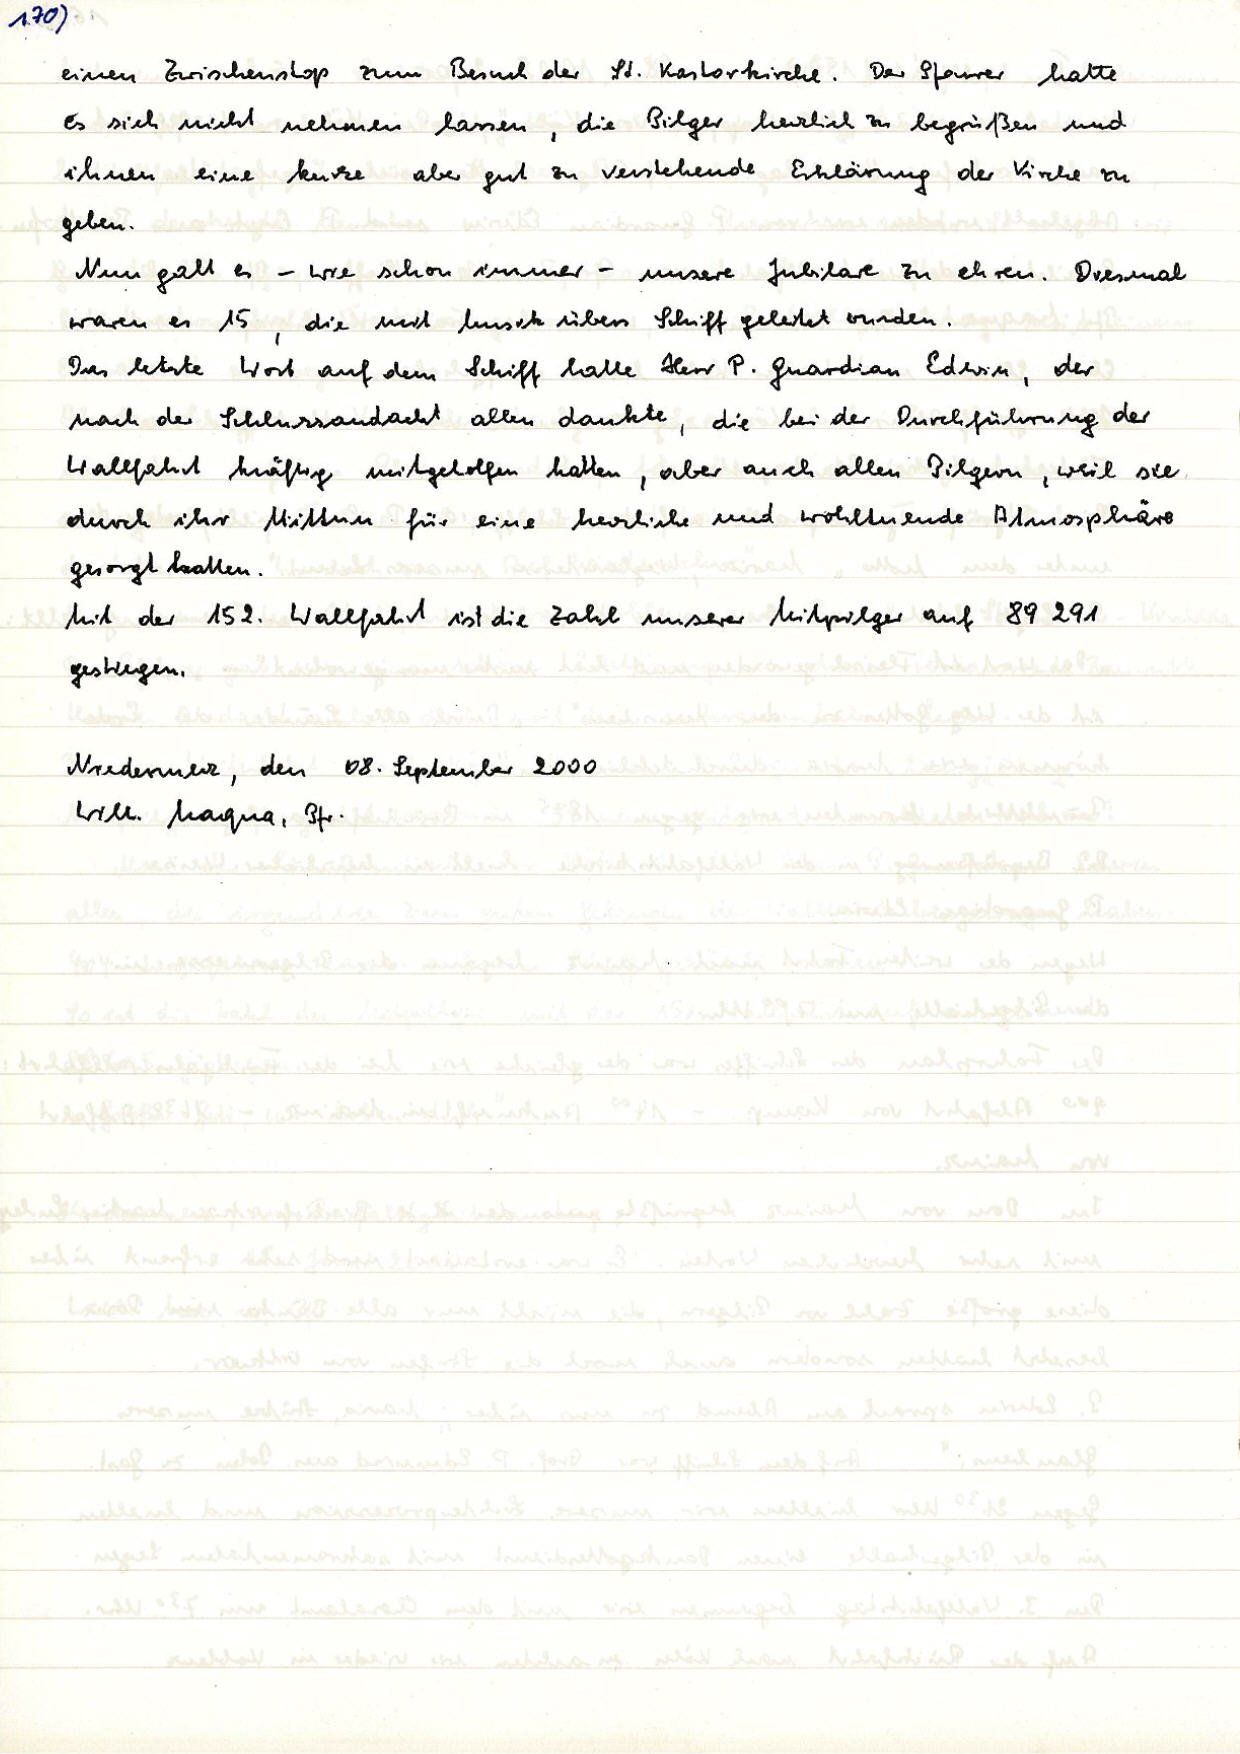 170)
einen Zwischenstop zum Besuch der St. Kastorkirche. Der Pfarrer hatte
es sich nicht nehmen lassen, die Pilger herzlich zu begrüßen und
ihnen eine kurze aber gut zu verstehende Erklärung der Kirche zu
geben.
Nun galt es – wie schon immer – unsere Jubilare zu ehren. Diesmal
waren es 15, die mit Musik übers Schiff geleitet wurden.
Das letzte Wort auf dem Schiff hatte Herr P. Guardian Edwin, der
nach der Schlussandacht allen dankte, die bei der Durchführung der
Wallfahrt kräftig mitgeholfen hatten, aber auch allen Pilgern, weil sie
durch ihr Mittun für eine herzliche und wohltuende Atmosphäre
gesorgt hatten.
Mit der 152. Wallfahrt ist die Zahl unserer Mitpilger auf 89 291
gestiegen.
Niedermerz, den 08. September 2000
Wilh. Maqua, Pfr.